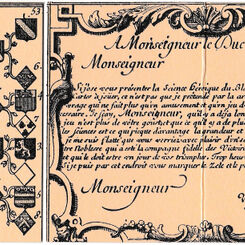 53
A Monseigneur le Duc
Monseigneur
Si j'ose vous présenter la Science Héroique du Bla
ce n'est pas que je prétende par la
ouvrage qui ne fait plus qu'un amusement et qu'un jeu d
Je sçay, Monseigneur, qu'il y a déja
n'est plus de vôtre goust, et que ce qu'il y a de plus
les sciences est ce qui pique davantage la grandeur et
je me suis flatté que vous verrez avec plaisir d'ans
tre Noblesse qui a été la compagne fidelle des Victoir
et qui le doit etre un jour de vos triomphes. Trop heure
Si je puis par cet endroit vous marquer le Zele et le p
Monseigneur
V
8